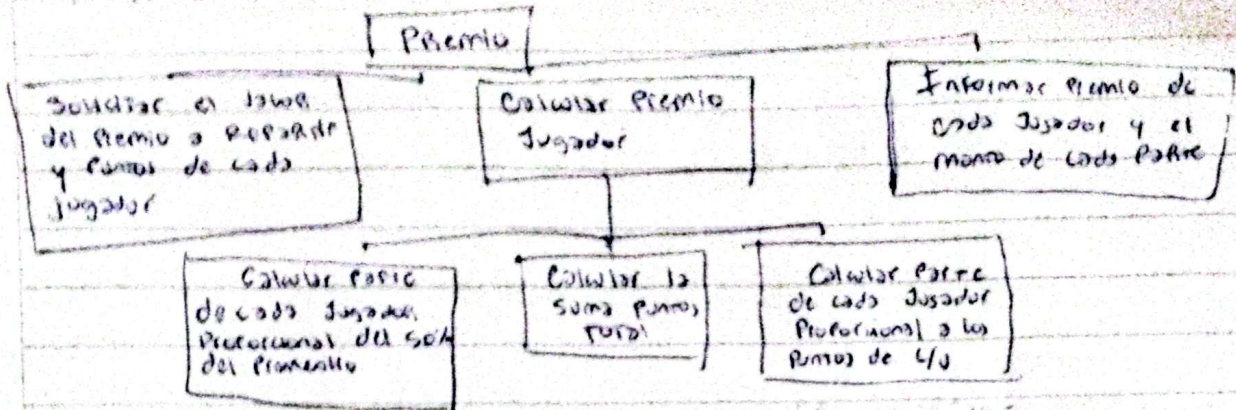 Premio
Solicitar el valor
del Premio a Repartir
y Puntos de cada
jugador
Calcular Premio
Jugador
Informar Premio de
cada Jugador y el
monto de cada Parte
Calcular Parte
de cada Jugador
Proporcional del 50%
del
Calcular la
suma puntos
total
Calcular Parte
de cada Jugador
Proporcional a los
Puntos de c/u